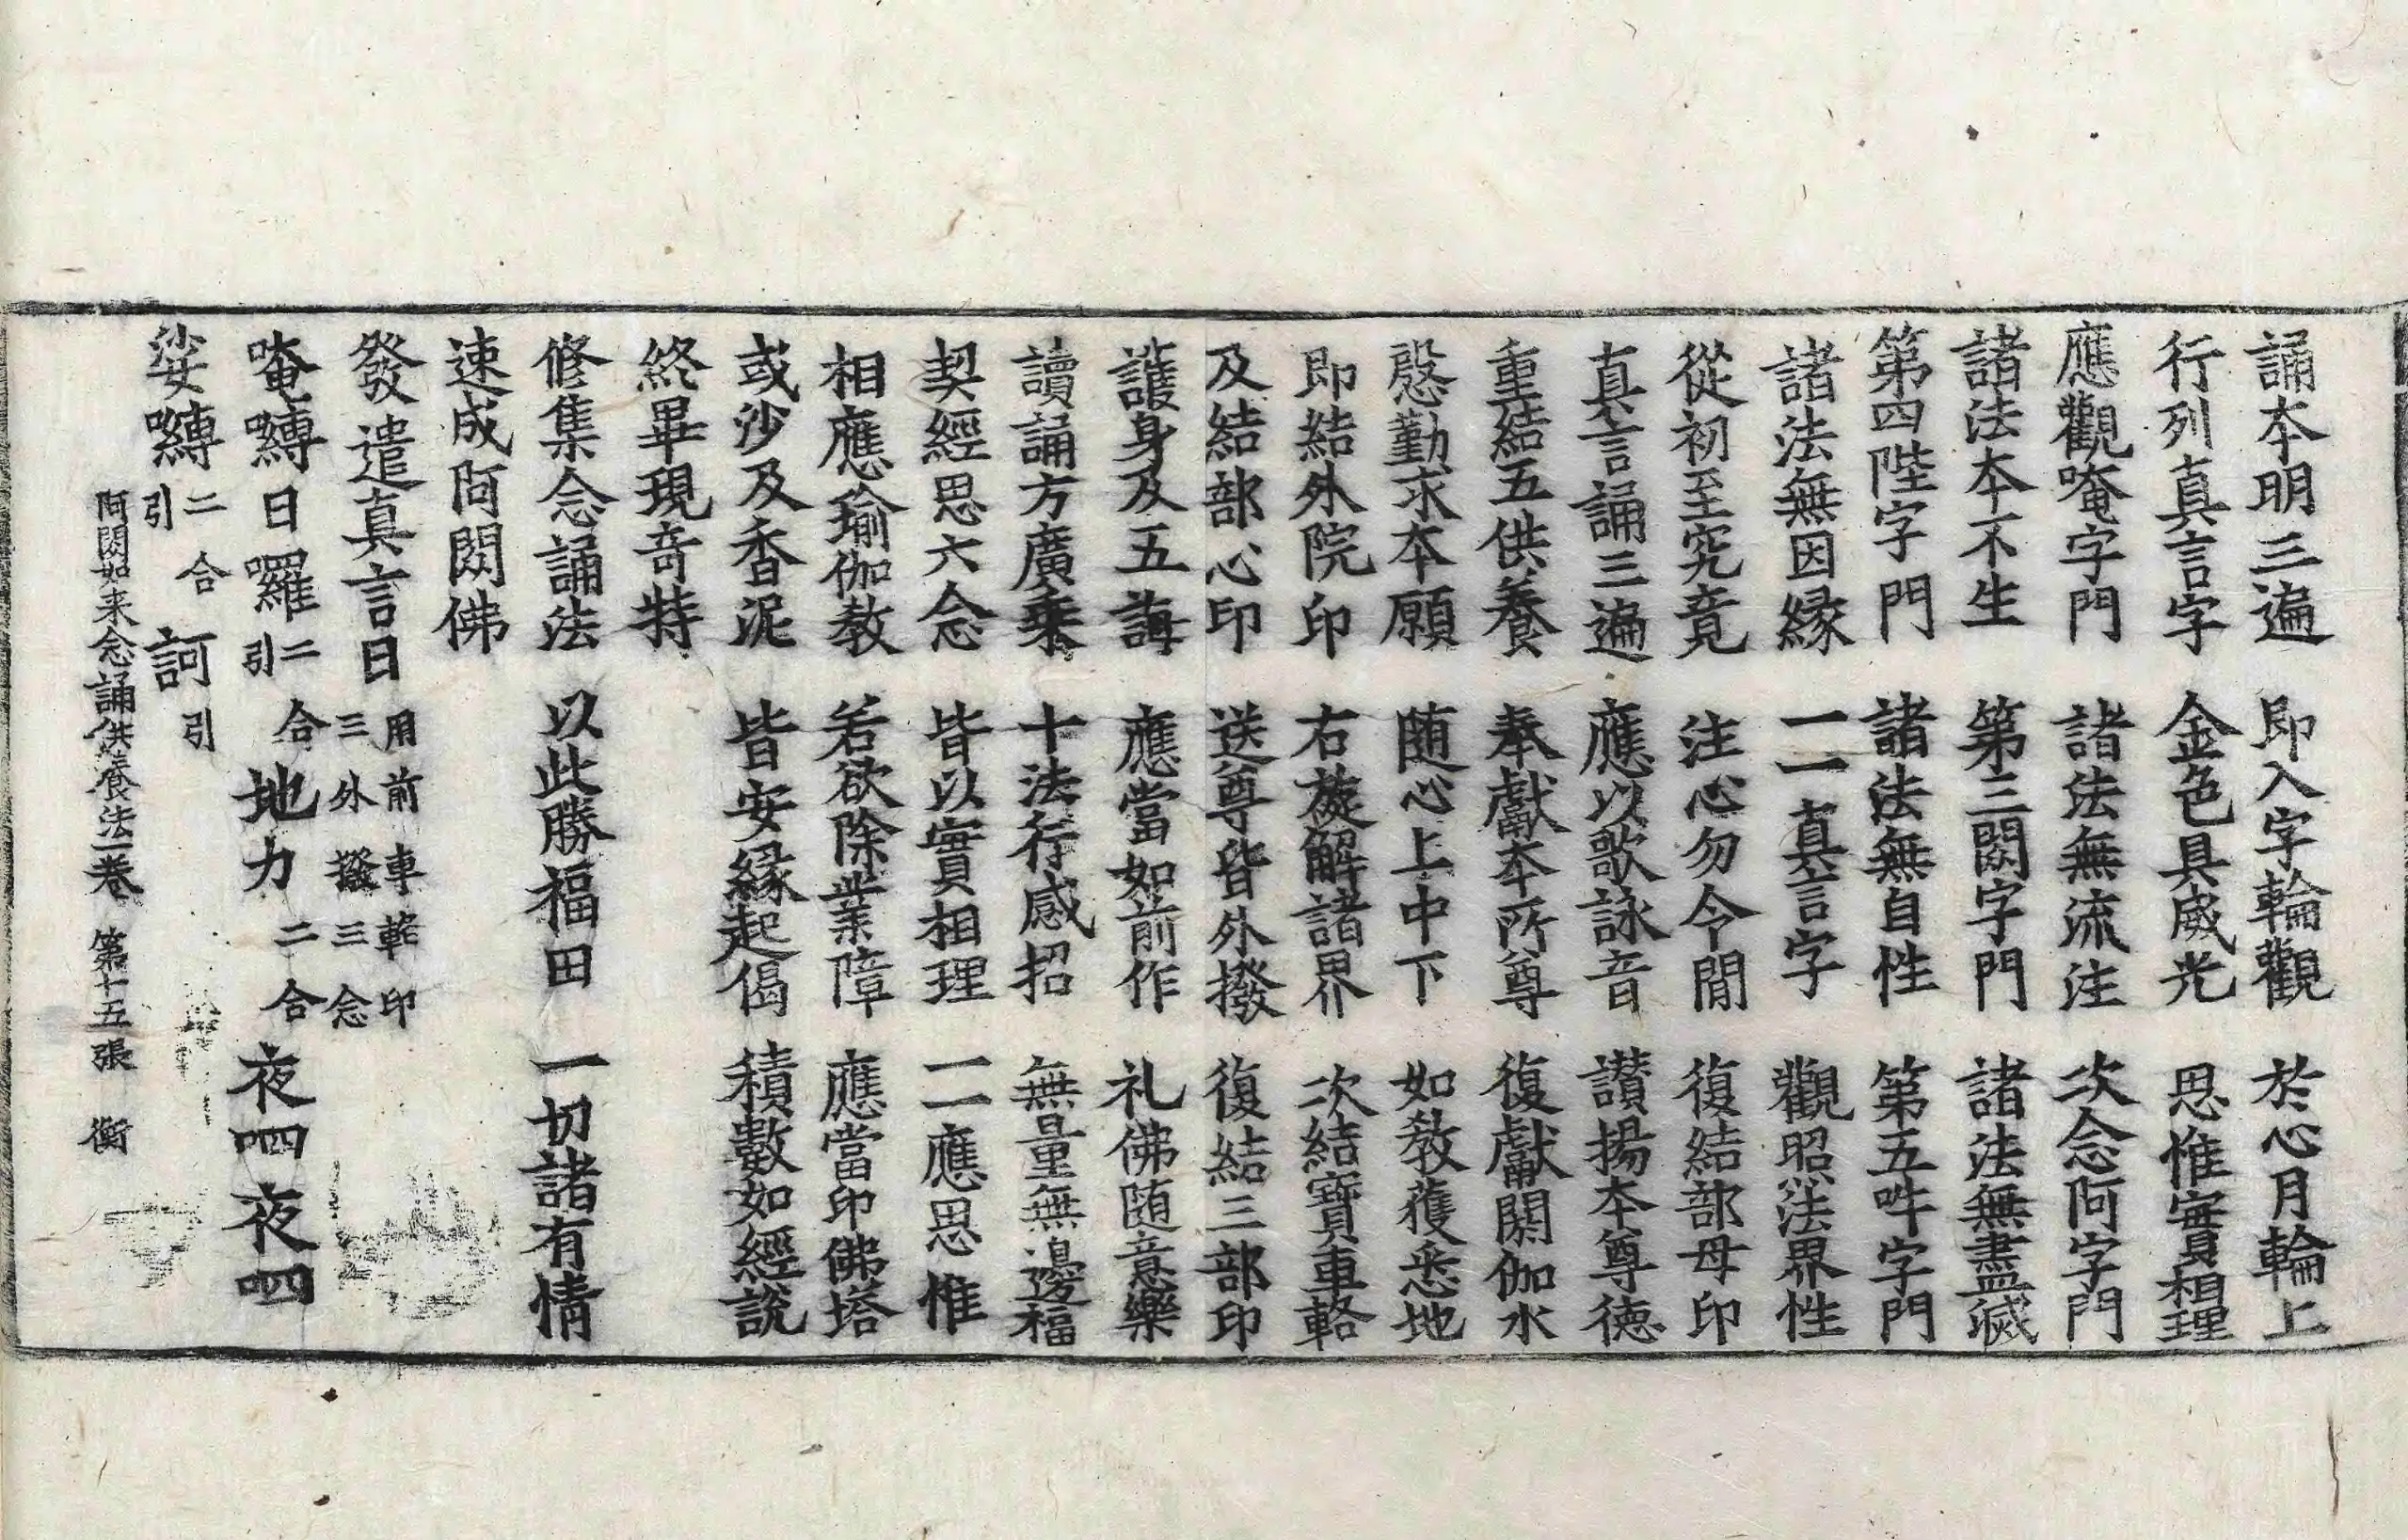 誦本明三遍　即入字輪觀　於心月輪上
行列真言字　金色具威光　思惟實相理
應觀唵字門　諸法無流注　次念阿字門
諸法本不生　第三閦字門　諸法無盡滅
第四陛字門　諸法無自性　第五吽字門
諸法無因緣　一一真言字　觀照法界性
從初至究竟　注心勿令閒　復結部母印
真言誦三遍　應以歌詠音　讃揚本尊德
重結五供養　奉獻本所尊　復獻閼伽水
慇勤求本願　随心上中下　如教獲悉地
即結外院印　右旋解諸界　次結寶車輅
及結部心印　送尊皆外撥　復結三部印
護身及五誨　應當如前作　礼佛随意樂
讀誦方廣乗　十法行感招　無量無邊福
契經思六念　皆以實相理　一一應思惟
相應瑜伽教　若欲除業障　應當印佛塔
或沙及香泥　皆安緣起偈　積數如經說
終畢現竒特
修集念誦法　以此勝福田　一切諸有情
速成阿閦佛
發遣真言曰　用前車輅印三外撥三念
唵嚩日囉二合引地力二合夜呬夜呬
娑嚩二合引訶引
阿閦如来念誦供養法一卷　第十五張　衡